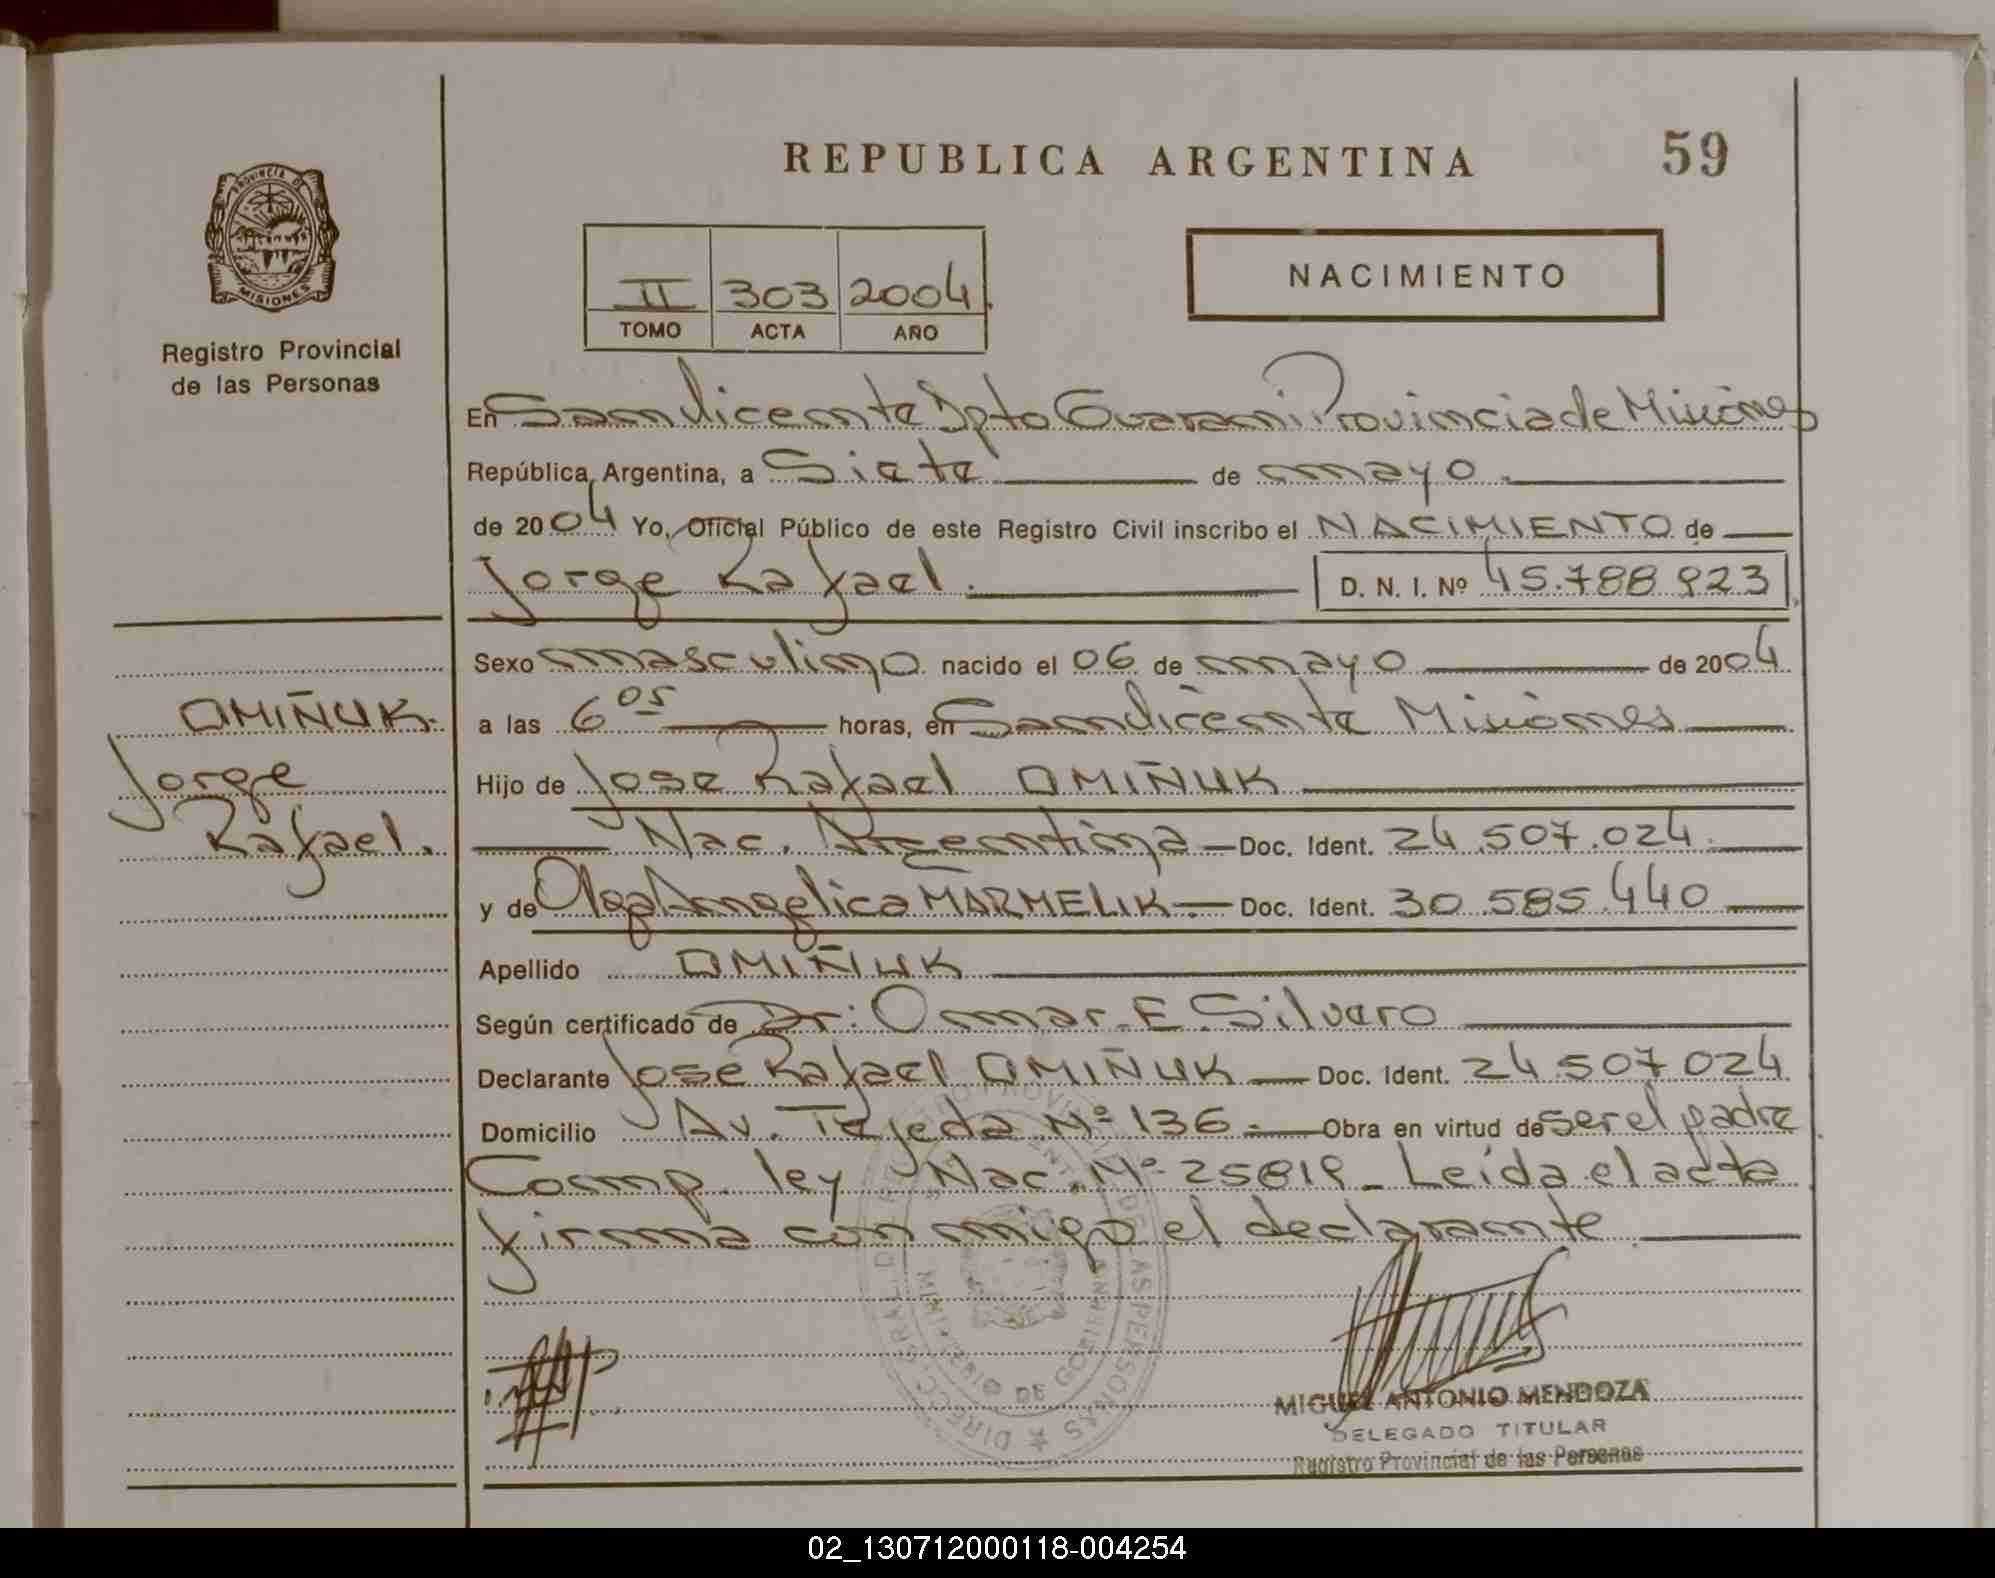 REPUBLICA ARGENTINA
59
PROVINCIA DE
MISIONES
Registro Provincial
de las Personas
II 303 2004
TOMO ACTA AÑO
NACIMIENTO
En San Vicente Dpto Guarani Provincia de Misiones
República Argentina, a Siete de mayo
de 2004 Yo, Oficial Público de este Registro Civil inscribo el NACIMIENTO de
Jorge Rafael. D. N. I. Nº 45.788.923
Sexo masculino nacido el 06 de mayo de 2004
a las 6 05 horas, en San Vicente Misiones
Hijo de Jose Rafael OMIÑUK
Nac. Argentina Doc. Ident. 24.507.024
y de Olga Angelica MARMELIK Doc. Ident. 30.585.440
Apellido OMIÑUK
Según certificado de Dr: Omar E. Silvero
Declarante Jose Rafael OMIÑUK Doc. Ident. 24 507 024
Domicilio Av. Tejeda Nº 136 Obra en virtud de ser el padre
Comp. ley Nac. Nº 25819 - Leída el acta
firma conmigo el declarante
OMIÑUK
Jorge
Rafael.
MIGUEL ANTONIO MENDOZA
DELEGADO TITULAR
Registro Provincial de las Personas
02_130712000118-004254